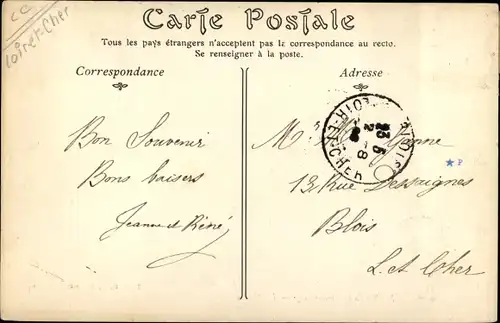 CC
Loir et-Cher
Carte Postale
Tous les pays étrangers n'acceptent pas la correspondance au recto.
Se renseigner à la poste.
Correspondance
Adresse
Bon Souvenir
Bons baisers
Jeanne et Réné
LOIR-ET-CHER
M
13 Rue Dessaignes
Blois
L. et Cher
P